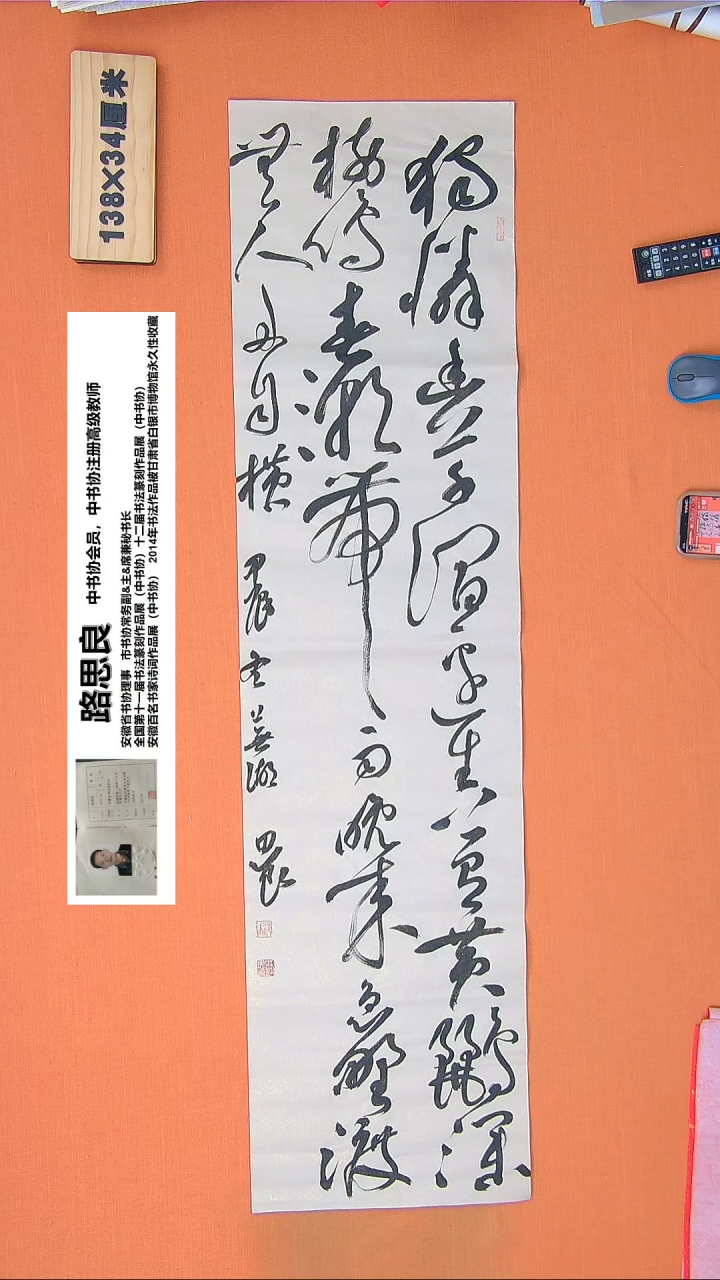 獨憐幽草澗邊生上有黃鸝深
樹鳴春潮帶雨晚來急野渡
無人舟自橫 甲辰 蕪湖 思良
138×34厘米
路思良 中书协会员，中书协注册高级教师
安徽省书协理事 市书协常务副&主&席兼秘书长
全国第十一届书法篆刻作品展（中书协）十二届书法篆刻作品展（中书协）
安徽百名书家诗词作品展（中书协） 2014年书法作品被甘肃省白银市博物馆永久性收藏